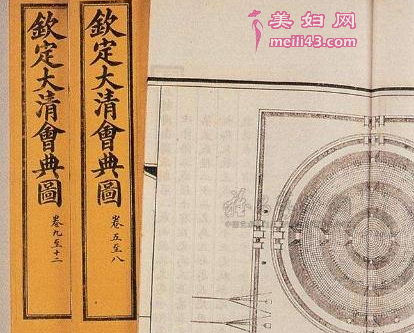 欽定大清會典圖
卷九至十二
欽定大清會典圖
卷五至八
美妇网
meili43.com